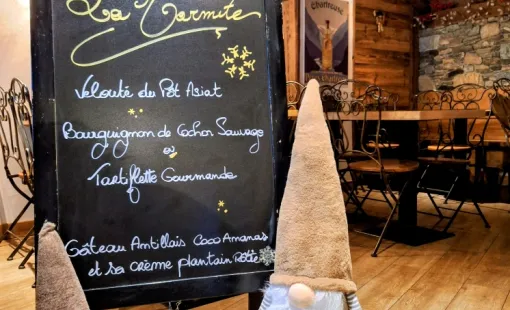 La Marmite
Velouté du Pôt Asiat
Bourguignon de Cochon Sauvage
ou
Tartiflette Gourmande
Gâteau Antillais Coco Amanas
et sa crème plantain Rôtie
Chartreuse